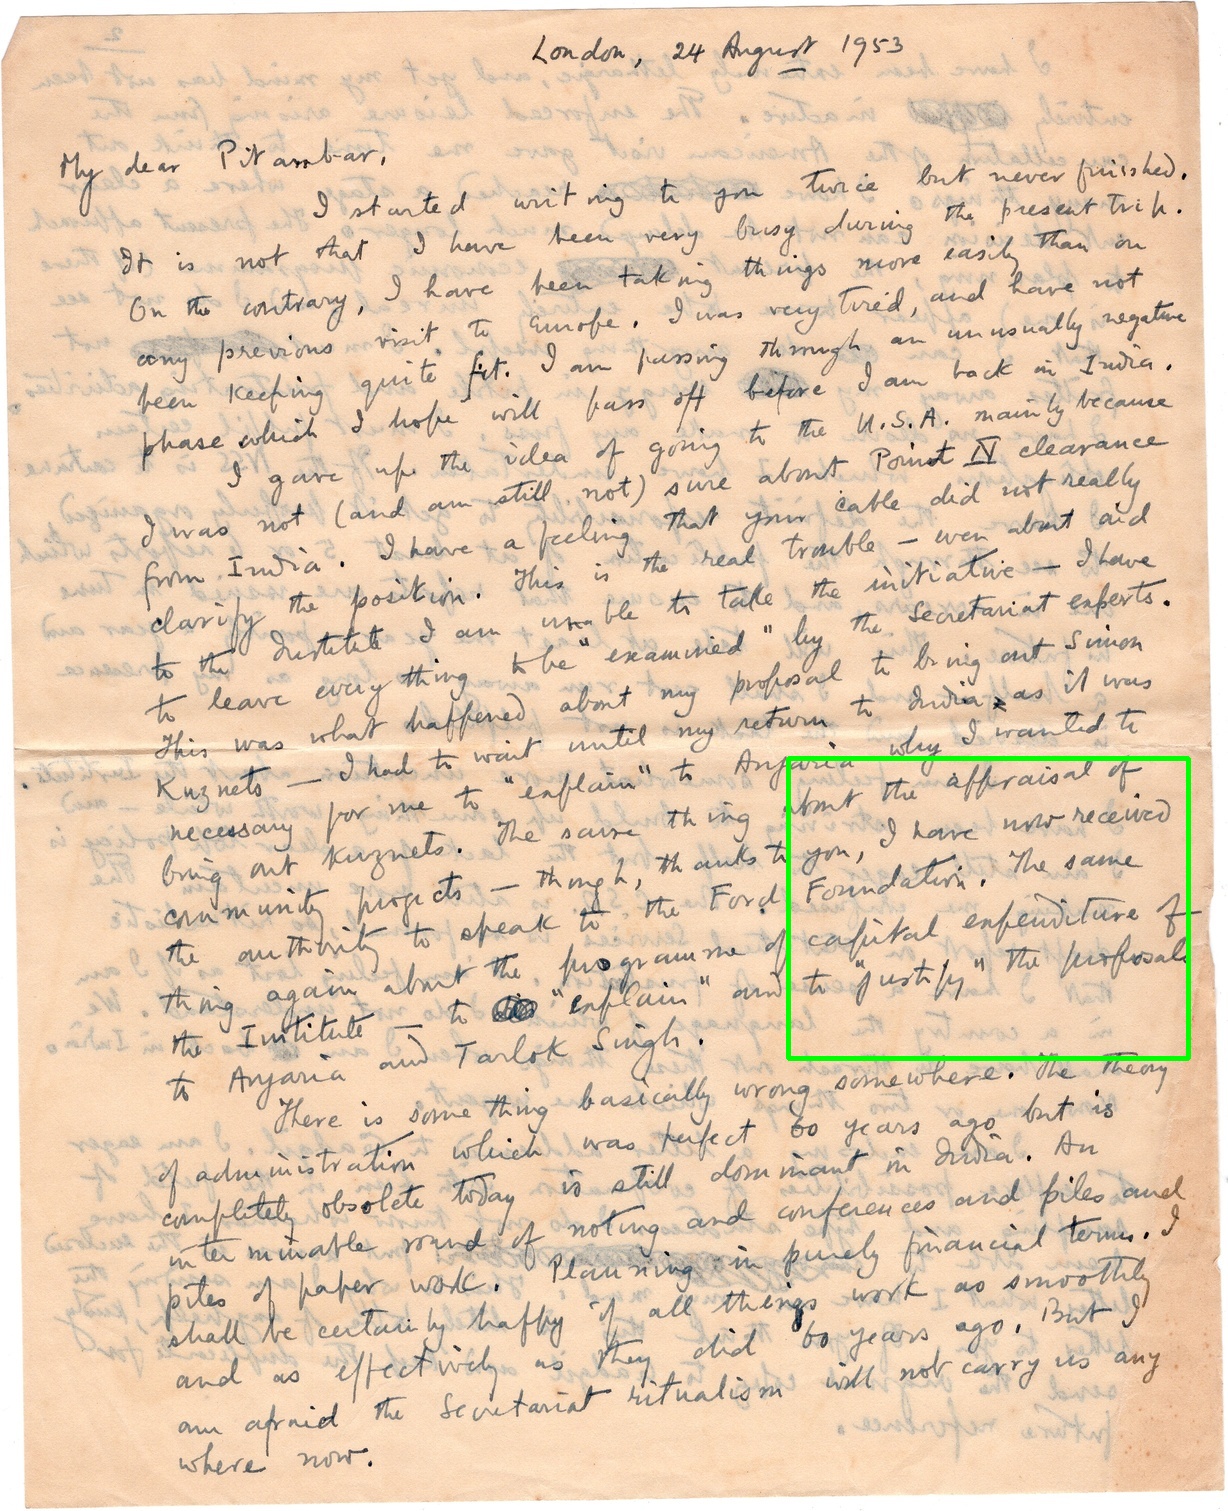 London, 24 August 1953
My dear Pitambar,
I started writing to you twice but never finished.
It is not that I have been very busy during the present trip.
On the contrary, I have been taking things more easily than on
any previous visit to Europe. I was very tired, and have not
been keeping quite fit. I am passing through an unusually negative
phase which I hope will pass off before I am back in India.
I gave up the idea of going to the U.S.A. mainly because
I was not (and am still not) sure about Point IV clearance
from India. I have a feeling that your cable did not really
clarify the position. This is the real trouble — even about aid
to the Institute I am unable to take the initiative — I have
to leave every thing to be "examined" by the Secretariat experts.
This was what happened about my proposal to bring out Simon
Kuznets — I had to wait until my return to India, as it was
necessary for me to "explain" to Anjaria why I wanted to
bring out Kuznets. The same thing about the appraisal of
community projects — though, thanks to you, I have now received
the authority to speak to the Ford Foundation. The same
thing again about the programme of capital expenditure of
the Institute — to "explain" and to "justify" the proposals
to Anjaria and Tarlok Singh.
There is something basically wrong somewhere. The theory
of administration which was perfect 60 years ago but is
completely obsolete today is still dominant in India. An
interminable round of noting and conferences and piles and
piles of paper work. Planning in purely financial terms. I
shall be certainly happy if all things work as smoothly
and as effectively as they did 60 years ago. But I
am afraid the Secretariat ritualism will not carry us any
where now.